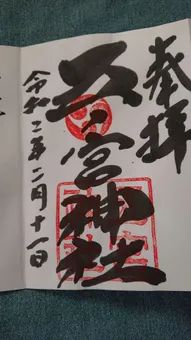 奉拝
五宮神社
令和二年二月十一日